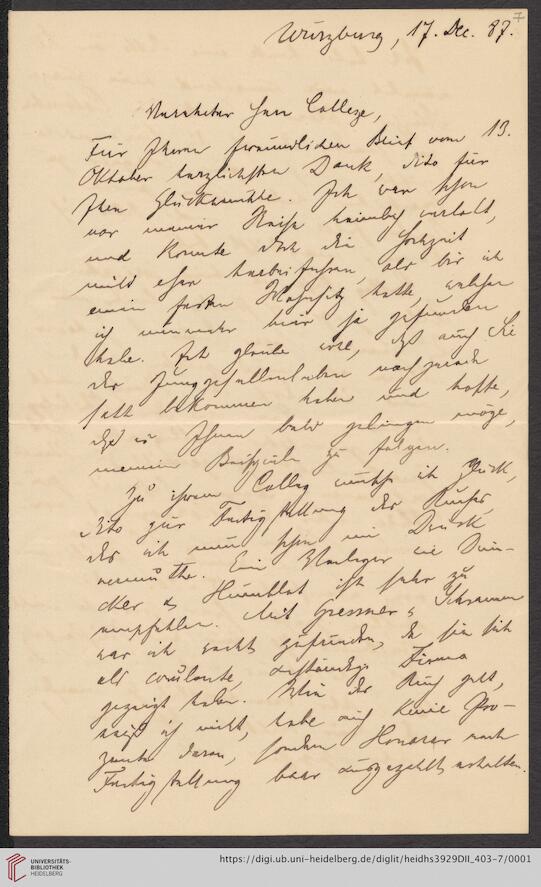 7
Würzburg, 17. Dec. 87.
Verehrter Herr College,
Für Ihren freundlichen Brief vom 13.
Oktober herzlichsten Dank, dito für
Ihre Glückwünsche. Ich war schon
vor meiner Reise heimlich verlobt,
und konnte doch die Hochzeit
nicht eher herbeiführen, als bis ich
einen festen Wohnsitz hatte, welchen
ich nunmehr hier ja gefunden
habe. Ich glaube wohl, daß auch Sie
das Junggesellenleben nachgerade
satt bekommen haben und hoffe,
daß es Ihnen bald gelingen möge,
meinem Beispiele zu folgen.
Zu Ihrem Colleg wünsche ich Glück,
dito zur Fertigstellung des
das ich nun schon im Druck
vermuthe. Ein Verleger wie Dun-
cker & Humblot ist sehr zu
empfehlen. Mit Gressner & Schramm
war ich recht zufrieden, da sie sich
als coulante, anständige Firma
gezeigt haben. Wie das Buch geht,
weiß ich nicht, habe auch keine Pro-
zente davon, sondern Honorar nach
Fertigstellung baar ausgezahlt erhalten.
UNIVERSITÄTS-
BIBLIOTHEK
HEIDELBERG
https://digi.ub.uni-heidelberg.de/diglit/heidhs3929DII_403-7/0001